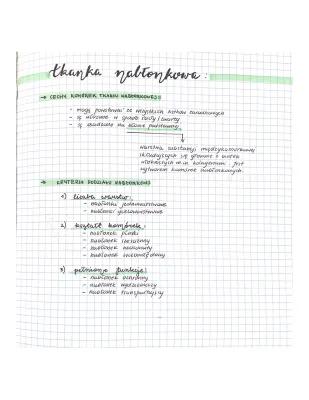 tkanka nabłonkowa:
→ CECHY KOMÓREK TKANKI NABŁONKOWEJ:
- mogą powstawać ze wszystkich listków zarodkowych
- są ułożone w sposób zwarty
- są osadzone na błonie podstawnej
warstwa substancji międzykomórkowej
składających się głównie z białek
włóknistych m.in. kolagenów. Jest
wytworem komórek nabłonkowych.
→ KRYTERIA PODZIAŁU NABŁONKÓW
1) liczba warstw:
- nabłonki jednowarstwowe
- nabłonki wielowarstwowe
2) kształt komórek:
- nabłonek płaski
- nabłonek sześcienny
- nabłonek walcowaty
- nabłonek
3) pełnione funkcje:
- nabłonek ochronny
- nabłonek wydzielniczy
- nabłonek transportujący